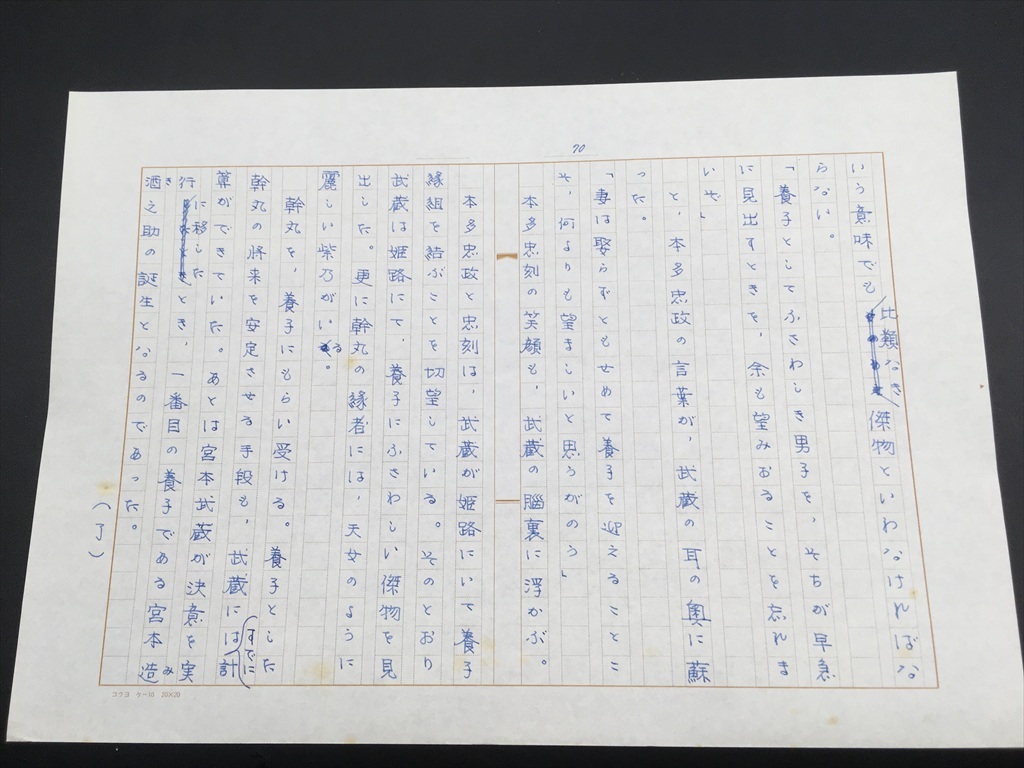 70
いう意味でも比類なき傑物といわなければな
らない。
「養子としてふさわしき男子を、そちが早急
に見出すときを、余も望みおることを忘れま
いぞ」
と、本多忠政の言葉が、武蔵の耳の奥に蘇
った。
「妻は娶らずともせめて養子を迎えることこ
そ、何よりも望ましいと思うがのう」
本多忠刻の笑顔も、武蔵の脳裏に浮かぶ。
本多忠政と忠刻は、武蔵が姫路にいて養子
縁組を結ぶことを切望している。そのとおり
武蔵は姫路にて、養子にふさわしい傑物を見
出した。更に幹丸の縁者には、天女のように
麗しい紫乃がいる。
幹丸を、養子にもらい受ける。養子とした
幹丸の将来を安定させる手段も、武蔵にはすでに計
算ができていた。あとは宮本武蔵が決意を実
行に移したとき、一番目の養子である宮本造
酒之助の誕生となるのであった。
みき
（了）
コクヨ ケー10 20×20